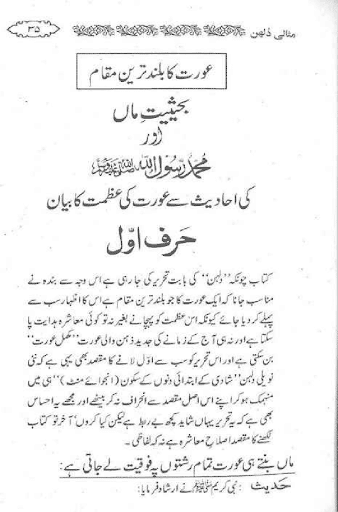 مثالی دُلہن ۳۵
عورت کا بلند ترین مقام
بحیثیتِ ماں
اور
محمد رسول اللہ ﷺ
کی احادیث سے عورت کی عظمت کا بیان
حَرفِ اوّل
کتاب چونکہ ”دلہن“ کی بابت تحریر کی جا رہی ہے اس وجہ سے بندہ نے
مناسب جانا کہ ایک عورت کا جو بلند ترین مقام ہے اس کا اظہار سب سے
پہلے کر دیا جائے کیونکہ اس عظمت کو پہچانے بغیر نہ تو کوئی معاشرہ ہدایت پا
سکتا ہے اور نہ ہی آج کے زمانے کی جدید ذہن والی عورت ”مکمل عورت“
بن سکتی ہے اور اس تحریر کو سب سے اوّل لانے کا مقصد بھی یہی ہے کہ نئی
نویلی دلہن ”شادی کے ابتدائی دنوں کے سکون (انجوائے منٹ)“ ہی میں
منہمک ہو کر اپنے اس اصل مقصد سے انحراف نہ کر بیٹھے اور مجھے یہ احساس
بھی ہے کہ یہ تحریر یہاں شاید کچھ بے ربط ہے لیکن کیا کروں‘ آخر تو کتاب
لکھنے کا مقصد اصلاحِ معاشرہ ہے نہ کہ لفاظی۔
ماں بنتے ہی عورت تمام رشتوں پہ فوقیت لے جاتی ہے:
حدیث : نبی کریم ﷺ نے ارشاد فرمایا: